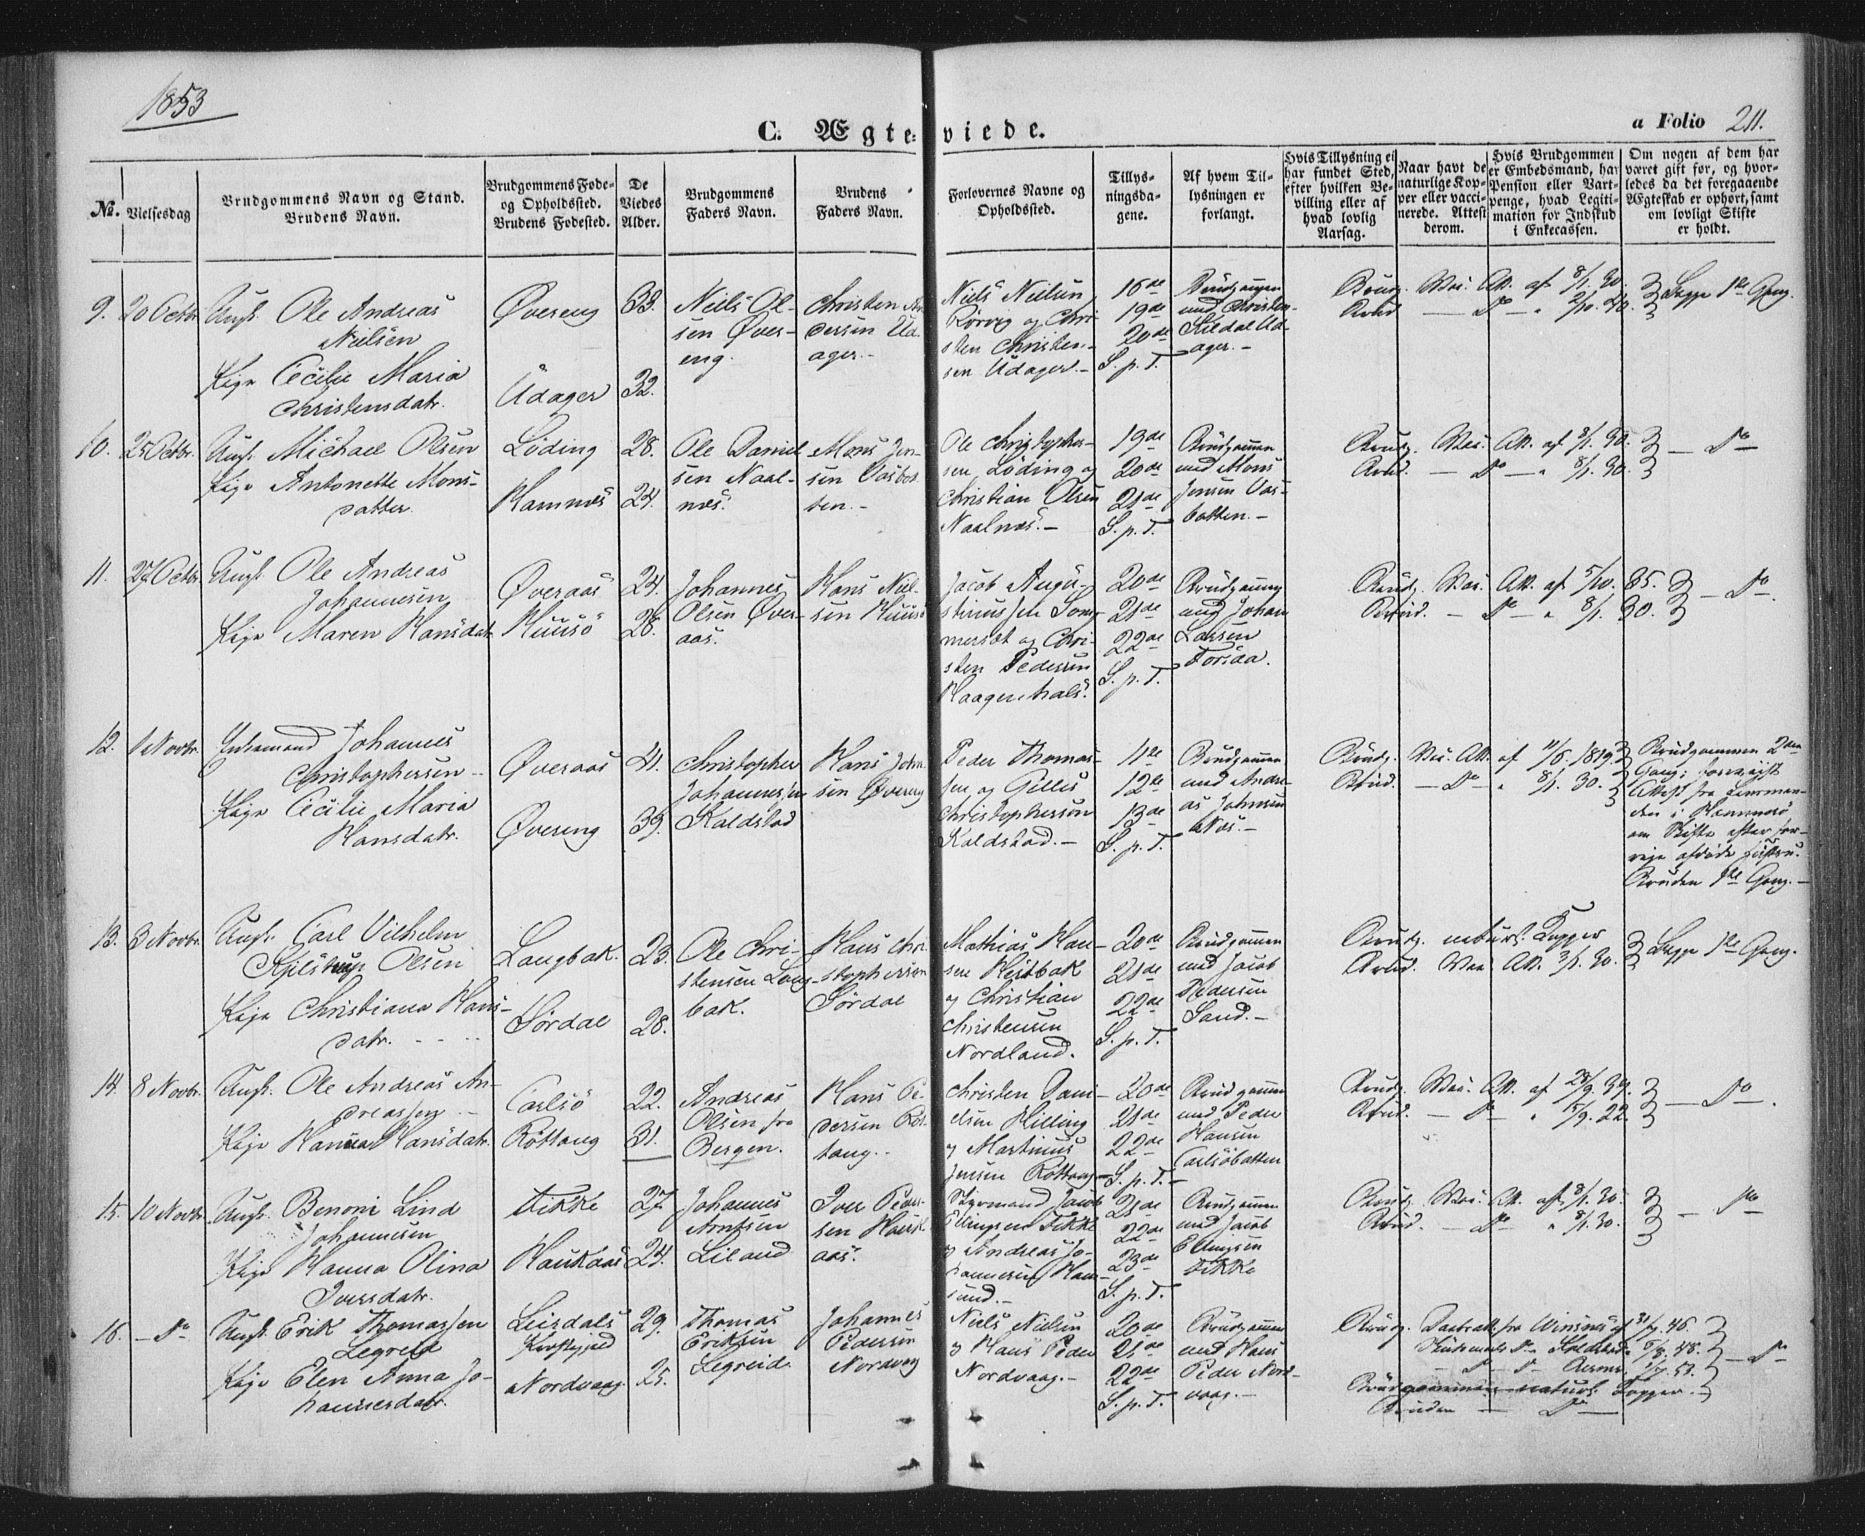 1853
C. Ægteviede.
a Folio 211.
No.
Vielsesdag
Brudgommens Navn og Stand.
Brudens Navn.
Brudgommens Føde-
og Opholdssted.
Brudens Fødested.
De
Viedes
Alder.
Brudgommens
Faders Navn.
Brudens
Faders Navn.
Forlovernes Navne og
Opholdssted.
Tillys-
ningsda-
gene.
Af hvem Til-
lysningen er
forlangt.
Hvis Tillysning ei
har fundet Sted,
efter hvilken Be-
villing eller af
hvad lovlig
Aarsag.
Naar havt de
naturlige Kop-
per eller vacci-
nerede. Attest
derom.
Hvis Brudgommen
er Embedsmand, har
Pension eller Vart-
penge, hvad Legiti-
mation for Indskud
i Enkecassen.
Om nogen af dem har
været gift før, og hvor-
ledes da det foregaaende
Ægteskab er ophørt, samt
om lovligt Skifte
er holdt.
9. 20 Octbr. Ungk. Ole Andreas
Nielsen
Pige Cecilie Maria
Christensdatr.
Øvereng
Udager
33.
32.
Niels Ol-
sen Øver-
eng.
Christen An-
dersen Ud-
ager.-
Niels Nielsen
Rørvig og Chri-
sten Christen-
sen Udager.-
16de
19de
20de
S. p. T.
Brudgommen
med Christen
Sildal Ud-
ager.-
Brudg. Vac. Att. af 8/1. 30.
Brud — Do — " 2/10. 20.
Begge 1ste Gang.
10. 25 Octbr. Ungk. Michael Olsen
Pige Antonette Mons-
datter
Løding
Hamnæs
28.
24.
Ole Daniel-
sen Naal-
næs.
Mons Jen-
sen Vasbot-
ten.-
Ole Christopher-
sen Løding og
Christian Olsen
Naalnæs.-
19de
20de
21de
S. p. T.
Brudgommen
med Mons
Jensen Vas-
botten.-
Brudg. Vac. Att. af 8/1. 30.
Brud. — Do — " 8/1. 30.
— Do
11. 27 Octbr. Ungk. Ole Andreas
Johannesen
Pige Maren Hansdatr.
Øveraas
Huusö
24.
28.
Johannes
Olsen Øver-
aas.
Hans Niel-
sen Huusö
Jacob Augu-
stinussen Som-
mersæt og Chri-
sten Pedersen
Haagenhals.
20de
21de
22de
S. p. T.
Brudgommen
med Johan
Larsen
Torsaa.
Brudg. Vac. Att. af 5/10. 35.
Brud. — Do — " 8/1. 30.
— Do.
12. 1 Novbr. Enkemand Johannes
Christophersen
Pige Cecilie Maria
Hansdatr.
Øveraas
Øvereng
41.
39.
Christopher
Johannessen
Kaldstad
Hans John-
sen Øvereng
Peder Thomas-
sen og Gilles
Christophersen
Kaldstad.-
11te
12te
13de
S. p. T.
Brudgommen
med Andre-
as Johnsen
Næs.-
Brudg. Vac. Att. af 11/6. 1819.
Brud. — Do — " 8/1. 30.
Brudgommen 2den
Gang; forevist
Attest fra Lensman-
den i Hammerö
om Skifte efter for-
rige afdøde Hustru.
Bruden 1ste Gang.-
13. 3 Novbr. Ungk. Carl Vilhelm
Kjelstrup Olsen
Pige Christiana Hans-
datr.
Langbak.
Sørdal
23.
28.
Ole Chri-
stensen Lang-
bak.
Hans Chri-
stophersen
Sørdal
Mathias Han-
sen Hestbak
og Christian
Christensen
Nordland.
20de
21de
22de
S. p. T.
Brudgommen
med Jacob
Pedersen
Sand.-
Brudg. naturl. Kopper
Brud. Vac. Att. 3/1. 30.
Begge 1ste Gang.
14. 8 Novbr. Ungk. Ole Andreas An-
dreassen
Pige Hanna Hansdatr.
Carlsö
Røttang
22.
31.
Andreas
Olsen fra
Bergen.
Hans Pe-
dersen Røt-
tang.
Christen Dani-
elsen Hilling
og Martinus
Jensen Røttang
20de
21de
22de
S. p. T.
Brudgommen
med Peder
Hansen
Carlsöbotten
Brudg. Vac. Att. af 28/9. 39.
Brud. — Do — " 5/9. 22.
— Do —.
15. 10 Novbr. Ungk. Benoni Lind
Johannesen
Pige Hanna Olina
Iversdatr.
Fikke
Haukaas
27.
24.
Johannes
Arntsen
Liland
Iver Peder-
sen Hauk-
aas.
Styrmand Jacob
Ellingsen Fikke
og Andreas Jo-
hannesen Ham-
sund.-
21de
22de
23de
S. p. T.
Brudgommen
med Jacob
Ellingsen
Fikke
Brudg. Vac. Att. af 8/1. 30.
Brud. — Do — " 8/1. 30.
— Do
16. — Do Ungk. Erik Thomassen
Legreid
Pige Elen Anna Jo-
hannesdatr.
Leirdals
Nordvaag
29.
25.
Thomas
Eriksen
Legreid.
Johannes
Pedersen
Nordvag
Niels Nielsen
og Hans Peder
Nordvaag.-
20de
21de
22de
S. p. T.
Brudgommen
med Hans
Peder Nord-
vaag.-
Brudgommen naturl. Kopper.
Bruden — Do —
— Do